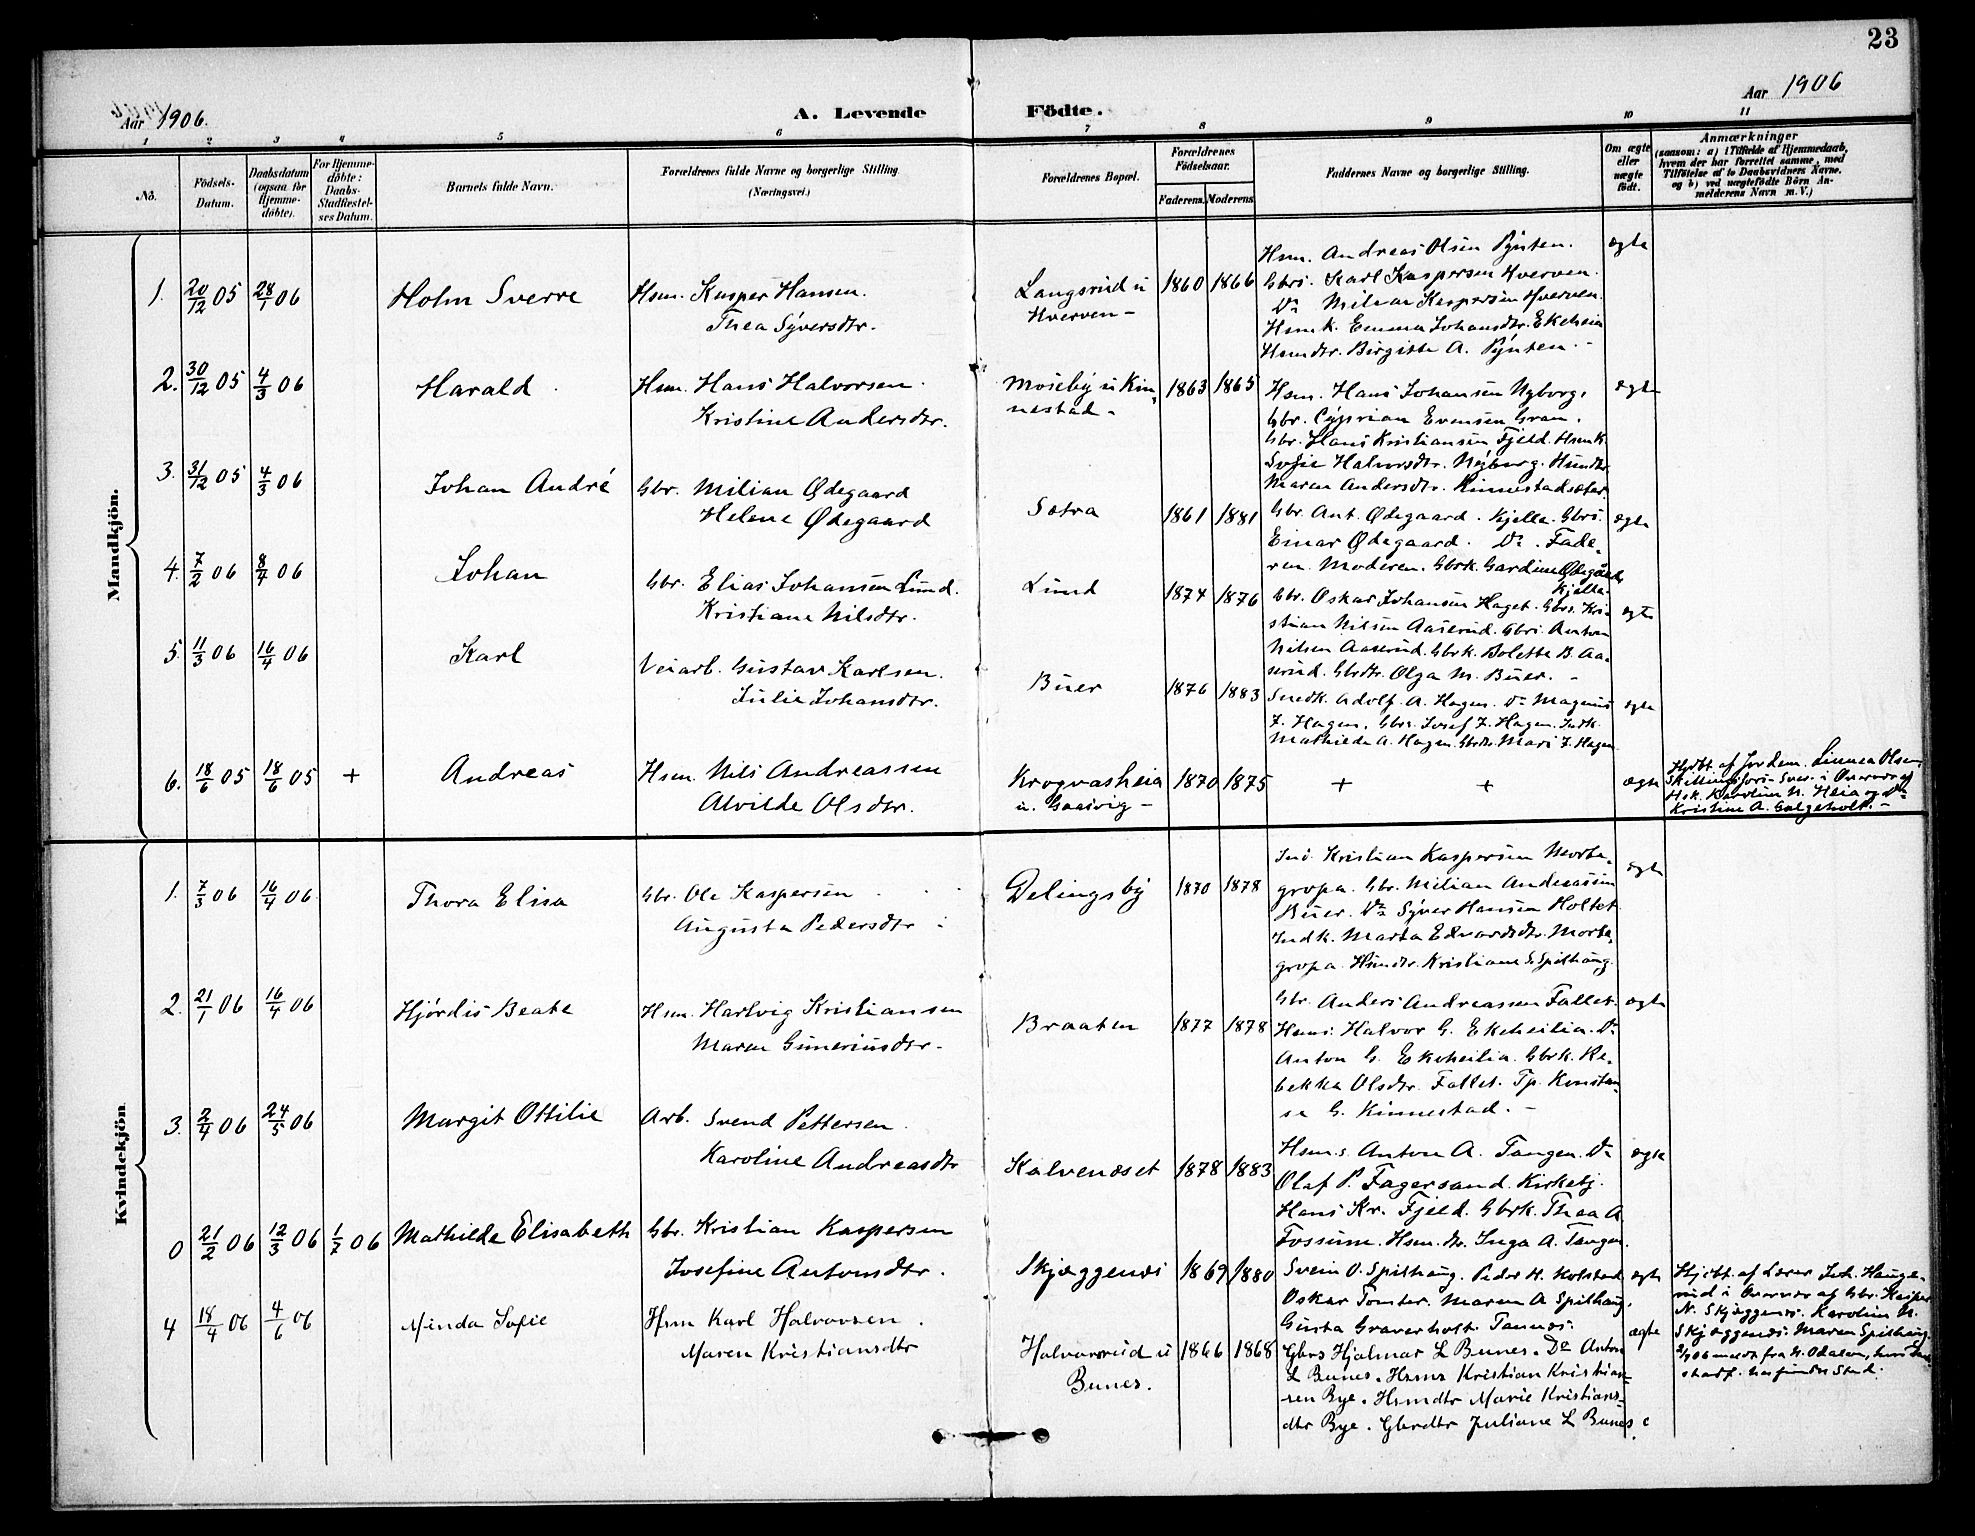 23
Aar 1906.
A. Levende
Födte.
Aar 1906
1 2 3 4 5 6 7 8 9 10 11
No.
Födsels-
Datum.
Daabsdatum
(ogsaa for
Hjemme-
döbte).
For Hjemme-
döbte:
Daabs-
Stadfæstel-
ses Datum.
Barnets fulde Navn.
Forældrenes fulde Navne og borgerlige Stilling
(Næringsvei.)
Forældrenes Bopæl.
Forældrenes
Födselsaar.
Faderens. Moderens.
Faddernes Navne og borgerlige Stilling.
Om ægte
eller
uægte
født.
Anmærkninger
(saasom: a) i Tilfælde af Hjemmedaab,
hvem der har forrettet samme, med
Tilföielse af to Daabsvidners Navne.
og b) ved uægtefödte Börn An-
melderens Navn m. V.)
Mandkjön.
1. 20/12 05 28/1 06 Holm Sverre
Hsm. Kasper Hansen.
Thea Syversdtr.
Langsrud u
Hverven -
1860 1866
Hsm. Andreas Olsen Pynten.
Gbrs. Karl Kaspersen Hverven.
Do Milian Kaspersen Hverven.
Hsmk. Emma Johansdtr. Ekeheia
Hsmdtr. Birgitte A. Pynten. -
ægte
2. 30/12 05 4/3 06 Harald.
Hsm. Hans Halvorsen.
Kristine Andersdtr.
Moseby u Kin-
nestad -
1863 1865
Hsm. Hans Johansen Nyborg.
Gbr. Cyprian Evensen Gran.
Gbr. Hans Kristiansen Fjeld. Hsmk.
Sofie Halvorsdtr. Nyborg. Hsmdtr.
Maren Andersdtr. Kinnestadsæter.
ægte
3. 31/12 05 4/3 06 Johan André
Gbr. Milian Ødegaard
Helene Ødegaard
Sætra
1861 1881
Gbr. Ant. Ødegaard. Kjelle. Gbrs.
Einar Ødegaard. Do. Fade-
ren. Moderen. Gbrk. Gardine Ødegaard
Kjelle.
ægte
4. 7/2 06 8/4 06 Johan
Gbr. Elias Johansen Lund.
Kristiane Nilsdtr.
Lund
1874 1876
Gbr. Oskar Johansen Haget. Gbrs. Kri-
stian Nilsen Aaserud. Gbrs. Anton
Nilsen Aaserud. Gbrk. Bolette B. Aa-
serud. Gbrdtr. Olga M. Buer. -
ægte
5. 11/3 06 16/4 06 Karl
Veiarb. Gustav Karlsen.
Julie Johansdtr.
Buer
1876 1883
Snedk. Adolf. A. Hagen. Do Magnus
J. Hagen. Gbrs. Josef J. Hagen. Indk.
Mathilde A. Hagen. Gbrdtr. Mari J. Hagen
ægte
6. 18/6 05 18/6 05 + Andreas
Hsm. Nils Andreassen
Alvilde Olsdtr.
Krogvasheia
u. Gaasvig -
1870 1875
+ +
ægte
Hjdbt. af Jordem. Linnea Olsen,
Skillingsfors - Sver. i Overvær af
Hsk. Karoline N. Heia og Do
Kristine A. Galgeholt. -
Kvindekjön
1. 7/3 06 16/4 06 Thora Elisa
Gbr. Ole Kaspersen
Augusta Pedersdtr
Delingsby
1870 1878
Ind. Kristian Kaspersen Morte-
gropa. Gbr. Milian Andreassen
Buer. Do Syver Hansen Holtet.
Indk. Marta Edvardsdtr. Morte-
gropa. Hsmdtr. Kristiane S. Spilhaug.
ægte
2. 21/1 06 16/4 06 Hjørdis Beate
Hsm. Hartvig Kristiansen
Maren Guneriusdtr. -
Braaten
1877 1878
Gbr. Anders Andreassen Fallet.
Hsms. Halvor G. Ekeheilia. Do
Anton G. Ekeheilia. Gbrk. Re-
bekka Olsdtr. Fallet. Tp. Konstan-
se G. Kinnestad. -
ægte
3. 2/4 06 24/5 06 Margit Ottilie
Arb. Svend Pettersen.
Karoline Andreasdtr
Kalveneset
1878 1883
Hsms. Anton A. Tangen. Do
Olaf P. Fagersand. Kirketj.
Hans Kr. Fjeld. Gbrk. Thea A
Fossum. Hsm.dtr. Inga A. Tangen.
ægte
0 21/2 06 12/3 06 1/7 06 Mathilde Elisabeth
Gbr. Kristian Kaspersen
Josefine Antonsdtr.
Skjæggenæs
1869 1880
Svein O. Spilhaug. Peder H. Kolstad
Oskar Tomter. Maren A Spilhaug.
Gusta Graverholt. Tannæs.
ægte
Hjdbt. af Lærer Joh. Hauge-
rud i Overvær af Gbr. Kasper
N. Skjæggenæs. Karoline N.
Skjæggenæs. Maren Spilhaug.
06 meldt fra N. Odalen, hvor
stadf. har fundet Sted.
4 18/4 06 4/6 06 Minda Sofie
Hsm Karl Halvorsen.
Maren Kristiansdtr
Halvorsrud u
Bunes.
1866 1868
Gbrs Hjalmar L Bunes. Do Anton
L Bunes. Hsms Kristian Kristian-
sen Bye. Hsmdtr Marie Kristians-
dtr Bye. Gbrdtr Juliane L Bunes.
ægte